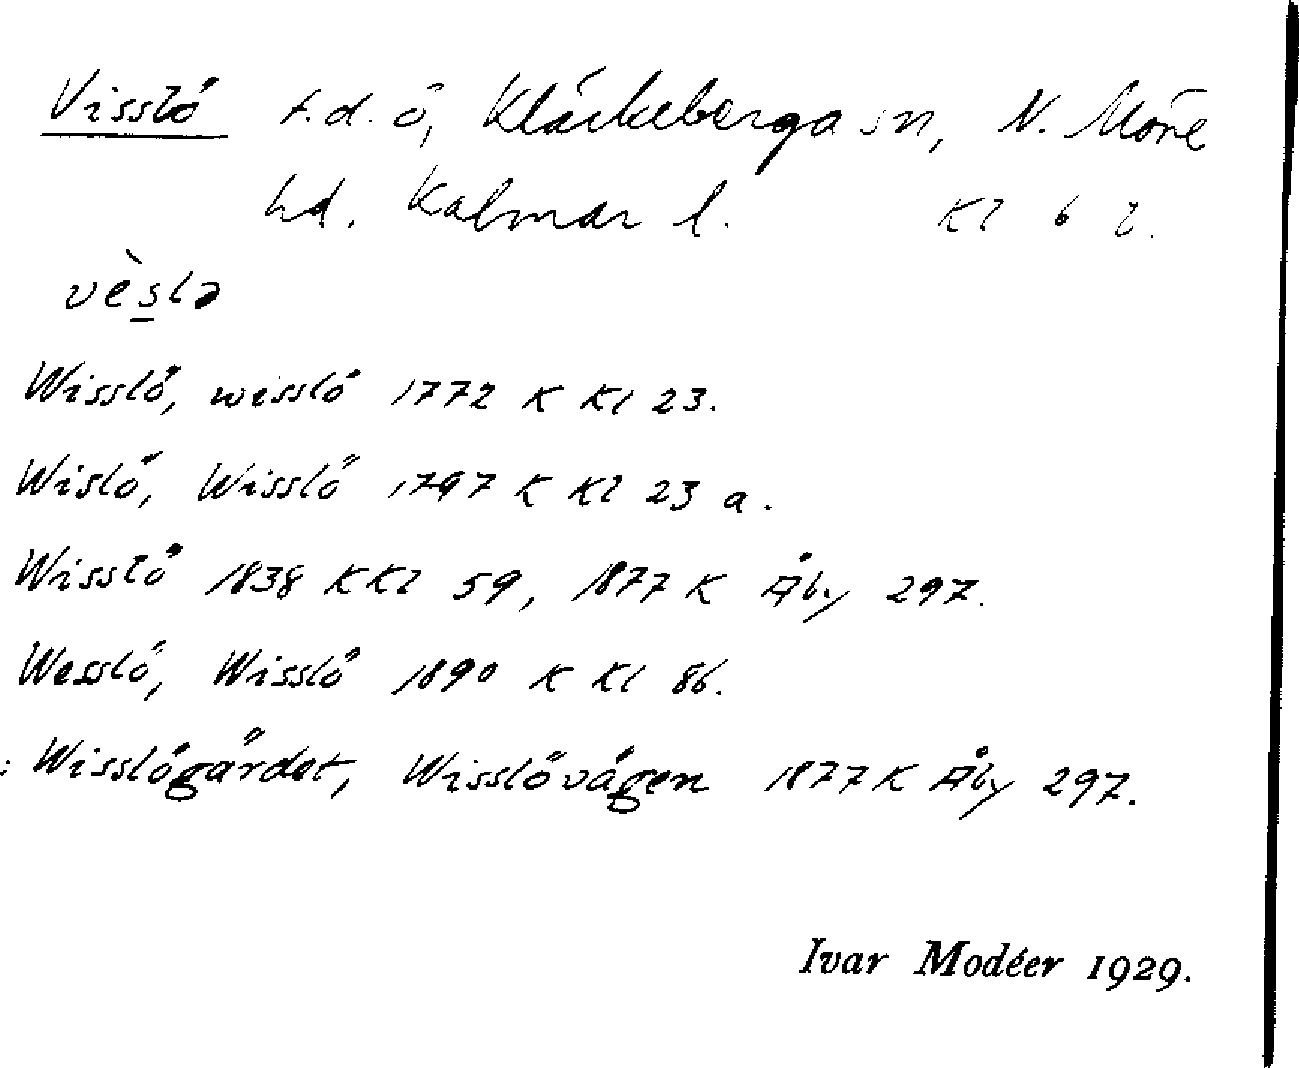 Visslö f.d. ö, Kläckeberga sn, N. Möre
hd. Kalmar l. Kl 6 l.
vèslə
Wisslö, wisslö 1772 K Kl 23.
Wislö, Wisslö 1797 K Kl 23 a.
Wisslö 1838 K Kl 59, 1877 K Åby 297.
Wesslö, Wisslö 1890 K Kl 86.
: Wisslögärdet, Wisslövägen 1877 K Åby 297.
Ivar Modéer 1929.